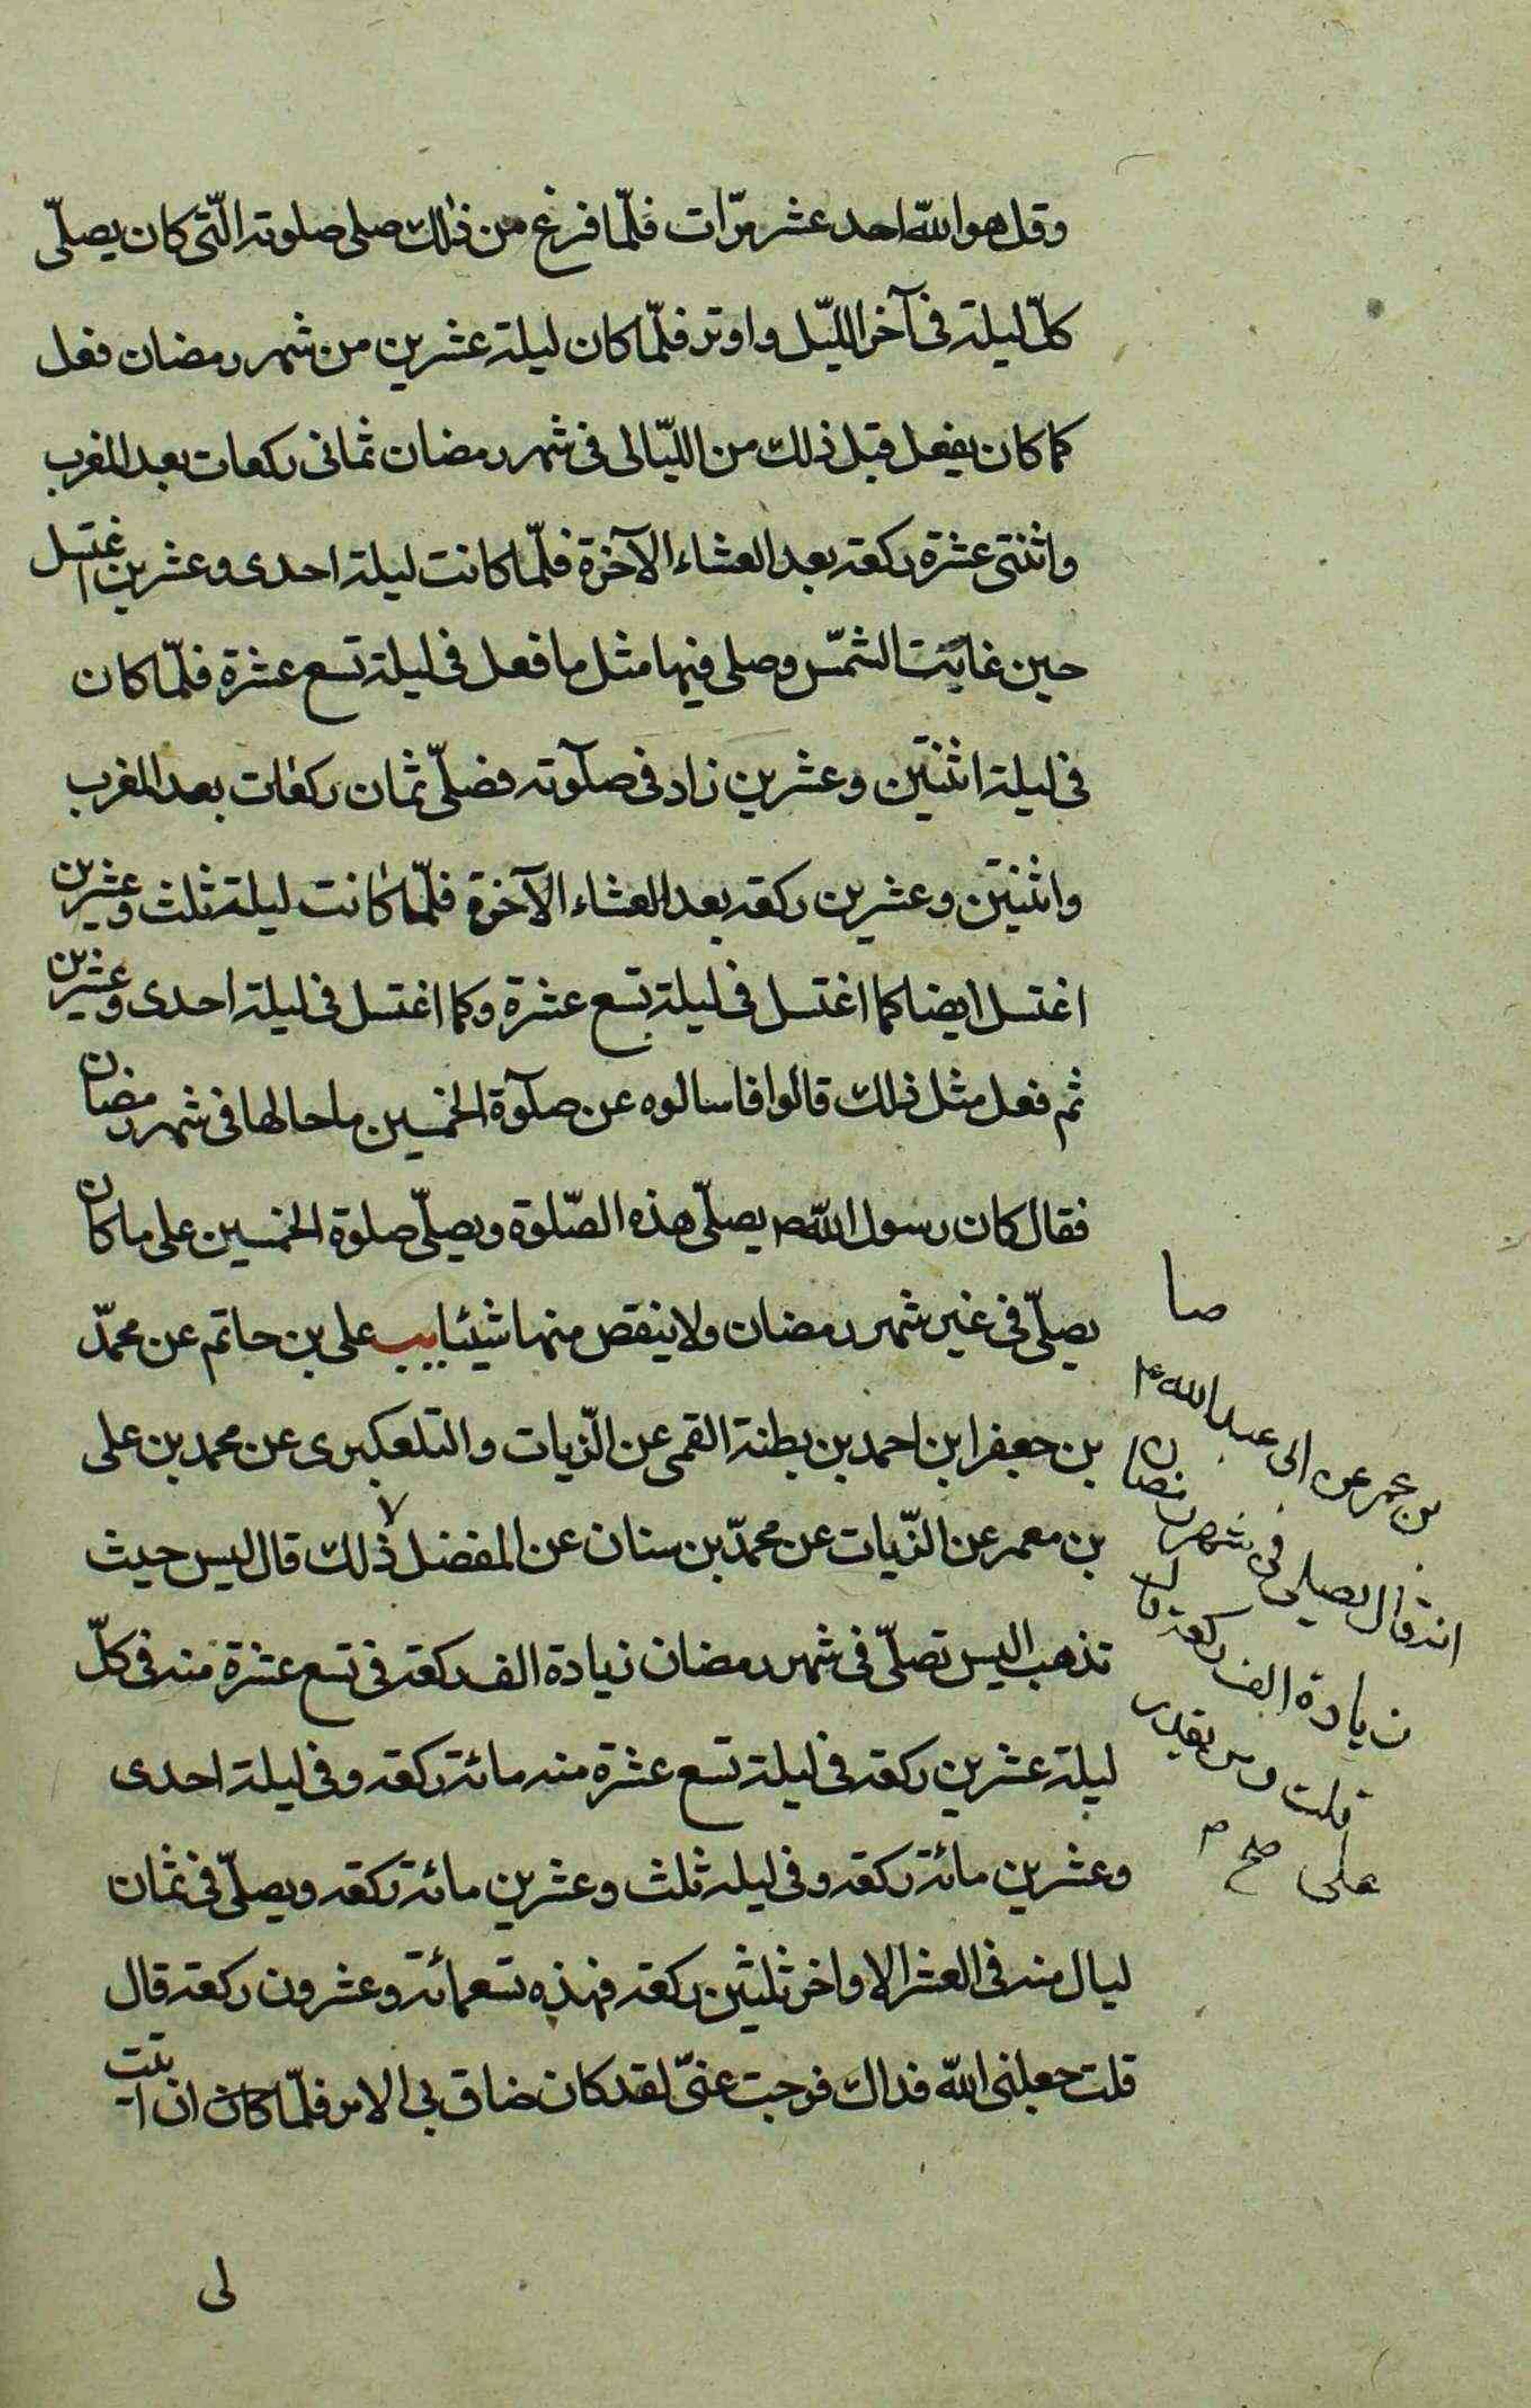 وقل هو الله احد عشر مرّات فلمّا فرغ من ذلك صلى صلوته الّتى كان يصلّى
كلّ ليلة فى آخر الليّل واوتر فلمّا كان ليلة عشرين من شهر رمضان فعل
كما كان يفعل قبل ذلك من الليّالى فى شهر رمضان ثمانى ركعات بعد المغرب
واثنتى عشرة ركعة بعد العشاء الآخرة فلمّا كانت ليلة احدى وعشرين اغتسل
حين غابت الشمّس وصلى فيها مثل ما فعل فى ليلة تسع عشرة فلمّا كان
فى ليلة اثنتين وعشرين زاد فى صلوته فصلّى ثمان ركعات بعد المغرب
واثنتين وعشرين ركعة بعد العشاء الآخرة فلمّا كانت ليلة ثلث وعشرين
اغتسل ايضا كما اغتسل فى ليلة تسع عشرة وكما اغتسل فى ليلة احدى وعشرين
ثم فعل مثل ذلك قالوا فاسالوه عن صلوة الخمسين ما حالها فى شهر رمضان
فقال كان رسول الله ص يصلّى هذه الصّلوة ويصلّى صلوة الخمسين على ما كان
يصلّى فى غير شهر رمضان ولا ينقص منها شيئا يب على بن حاتم عن محمّد
بن جعفر ابن احمد بن بطنة القمى عن الزّيات والتلعكبرى عن محمد بن على
بن معمر عن الزّيات عن محمّد بن سنان عن المفضل ذلك قال ليس حيث
تذهب اليس تصلّى فى شهر رمضان زيادة الف ركعة فى تسع عشرة منه فى كلّ
ليلة عشرين ركعة فى ليلة تسع عشرة منه مائة ركعة وفى ليلة احدى
وعشرين مائة ركعة وفى ليلة ثلث وعشرين مائة ركعة ويصلّى فى ثمان
ليال منه فى العشر الاواخر ثلثين ركعة فهذه تسعمائة وعشرون ركعة قال
قلت جعلنى الله فداك فرجت عنىّ لقد كان ضاق بى الامر فلمّا كان ان اتيت
لى
صا
بن عمر عن ابى عبد الله ع
انه قال يصلى فى شهر رمضان
زيادة الف ركعة قال
قلت ومن يقدر
على صح م